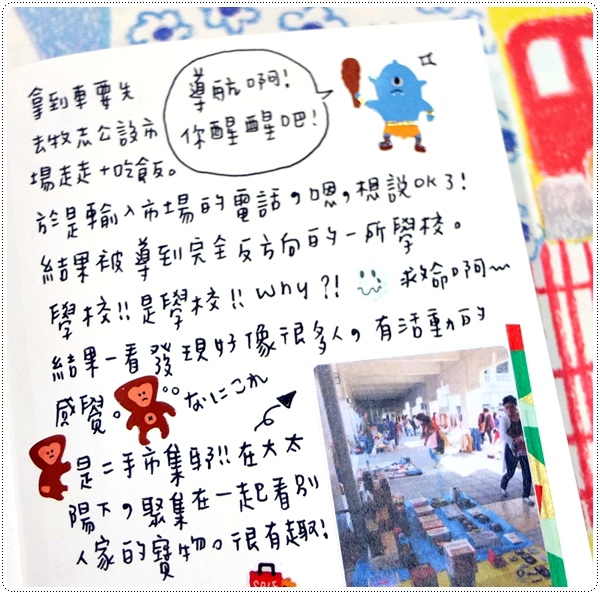 拿到車要先
去牧志公設市
場走走+吃飯。
導航啊!
你醒醒吧!
於是輸入市場的電話,嗯,想說OK了!
結果被導到完全反方向的一所學校。
學校!!是學校!!why?! 救命啊~
結果一看發現好像很多人,有活動的
感覺。 なにこれ
是二手市集耶!!在大太
陽下,聚集在一起看別
人家的寶物。很有趣!
SALE